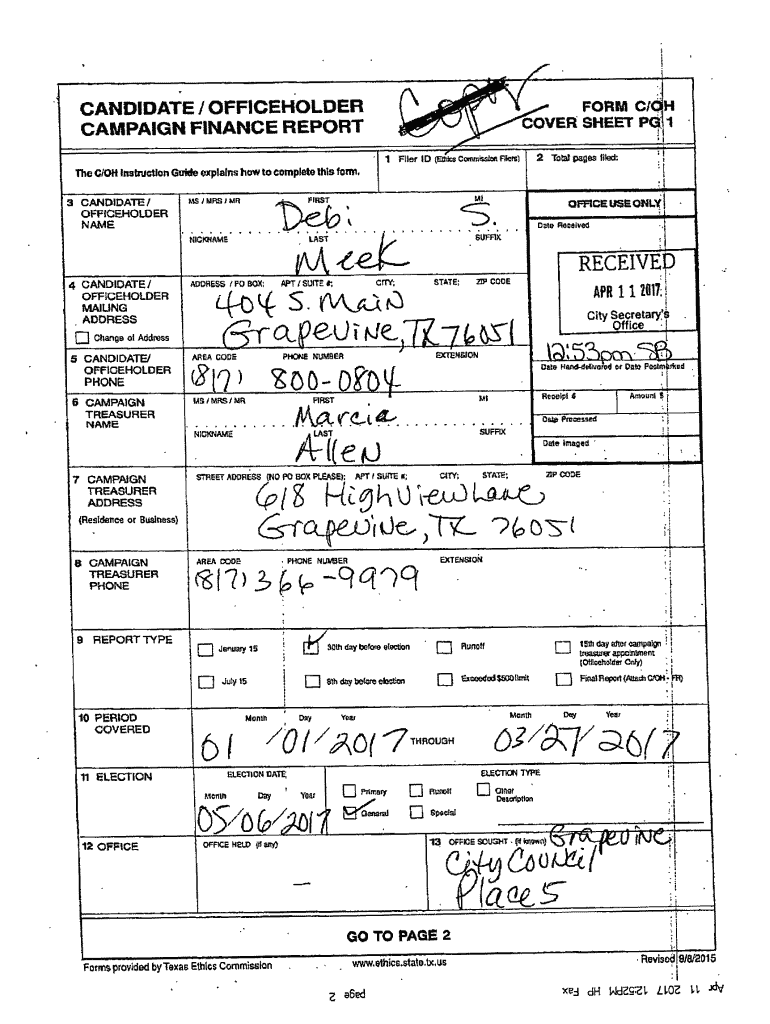 CANDIDATE / OFFICEHOLDER
CAMPAIGN FINANCE REPORT
Copy
FORM C/OH
COVER SHEET PG 1
The C/OH Instruction Guide explains how to complete this form.
1 Filer ID (Ethics Commission Filers)
2 Total pages filed:
3 CANDIDATE / OFFICEHOLDER NAME
MS / MRS / MR FIRST MI
Debi S.
NICKNAME LAST SUFFIX
Meek
OFFICE USE ONLY
Date Received
RECEIVED
APR 11 2017
City Secretary's
Office
12:53pm SB
Date Hand-delivered or Date Postmarked
Receipt # Amount $
Date Processed
Date Imaged
4 CANDIDATE / OFFICEHOLDER MAILING ADDRESS
Change of Address
ADDRESS / PO BOX; APT / SUITE #; CITY; STATE; ZIP CODE
404 S. Main
Grapevine, TX 76051
5 CANDIDATE/ OFFICEHOLDER PHONE
AREA CODE PHONE NUMBER EXTENSION
(817) 800-0804
6 CAMPAIGN TREASURER NAME
MS / MRS / MR FIRST MI
Marcia
NICKNAME LAST SUFFIX
Allen
7 CAMPAIGN TREASURER ADDRESS
(Residence or Business)
STREET ADDRESS (NO PO BOX PLEASE); APT / SUITE #; CITY; STATE; ZIP CODE
618 Highview Lane
Grapevine, TX 76051
8 CAMPAIGN TREASURER PHONE
AREA CODE PHONE NUMBER EXTENSION
(817) 366-9979
9 REPORT TYPE
January 15
30th day before election
Runoff
15th day after campaign treasurer appointment (Officeholder Only)
July 15
8th day before election
Exceeded $500 limit
Final Report (Attach C/OH - FR)
10 PERIOD COVERED
Month Day Year
01/01/2017 THROUGH
Month Day Year
03/27/2017
11 ELECTION
ELECTION DATE
Month Day Year
05/06/2017
ELECTION TYPE
Primary Runoff Other Description
General Special
12 OFFICE
OFFICE HELD (if any)
—
13 OFFICE SOUGHT (if known) Grapevine
City Council
Place 5
GO TO PAGE 2
Forms provided by Texas Ethics Commission www.ethics.state.tx.us Revised 9/8/2015
page 2
Apr 11 2017 12:52PM HP Fax